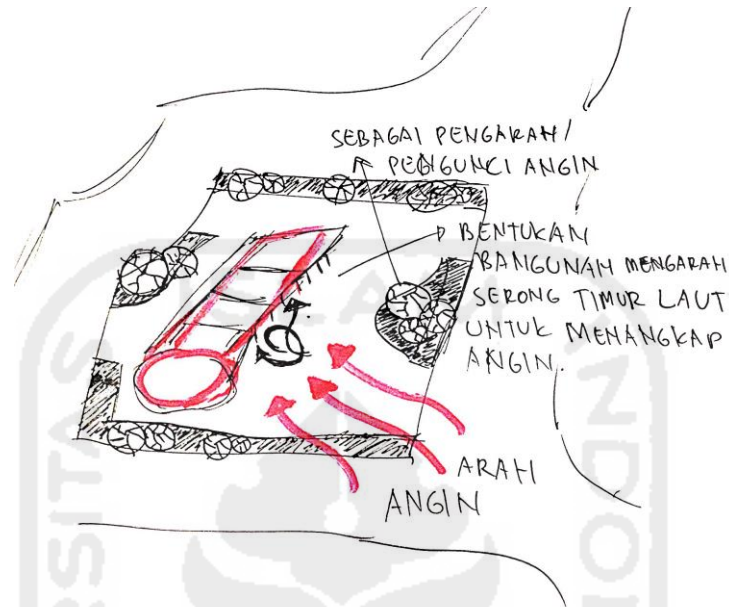 SEBAGAI PENGARAH/
PENGUNCI ANGIN
BENTUKAN
BANGUNAN MENGARAH
SERONG TIMUR LAUT
UNTUK MENANGKAP
ANGIN.
ARAH
ANGIN